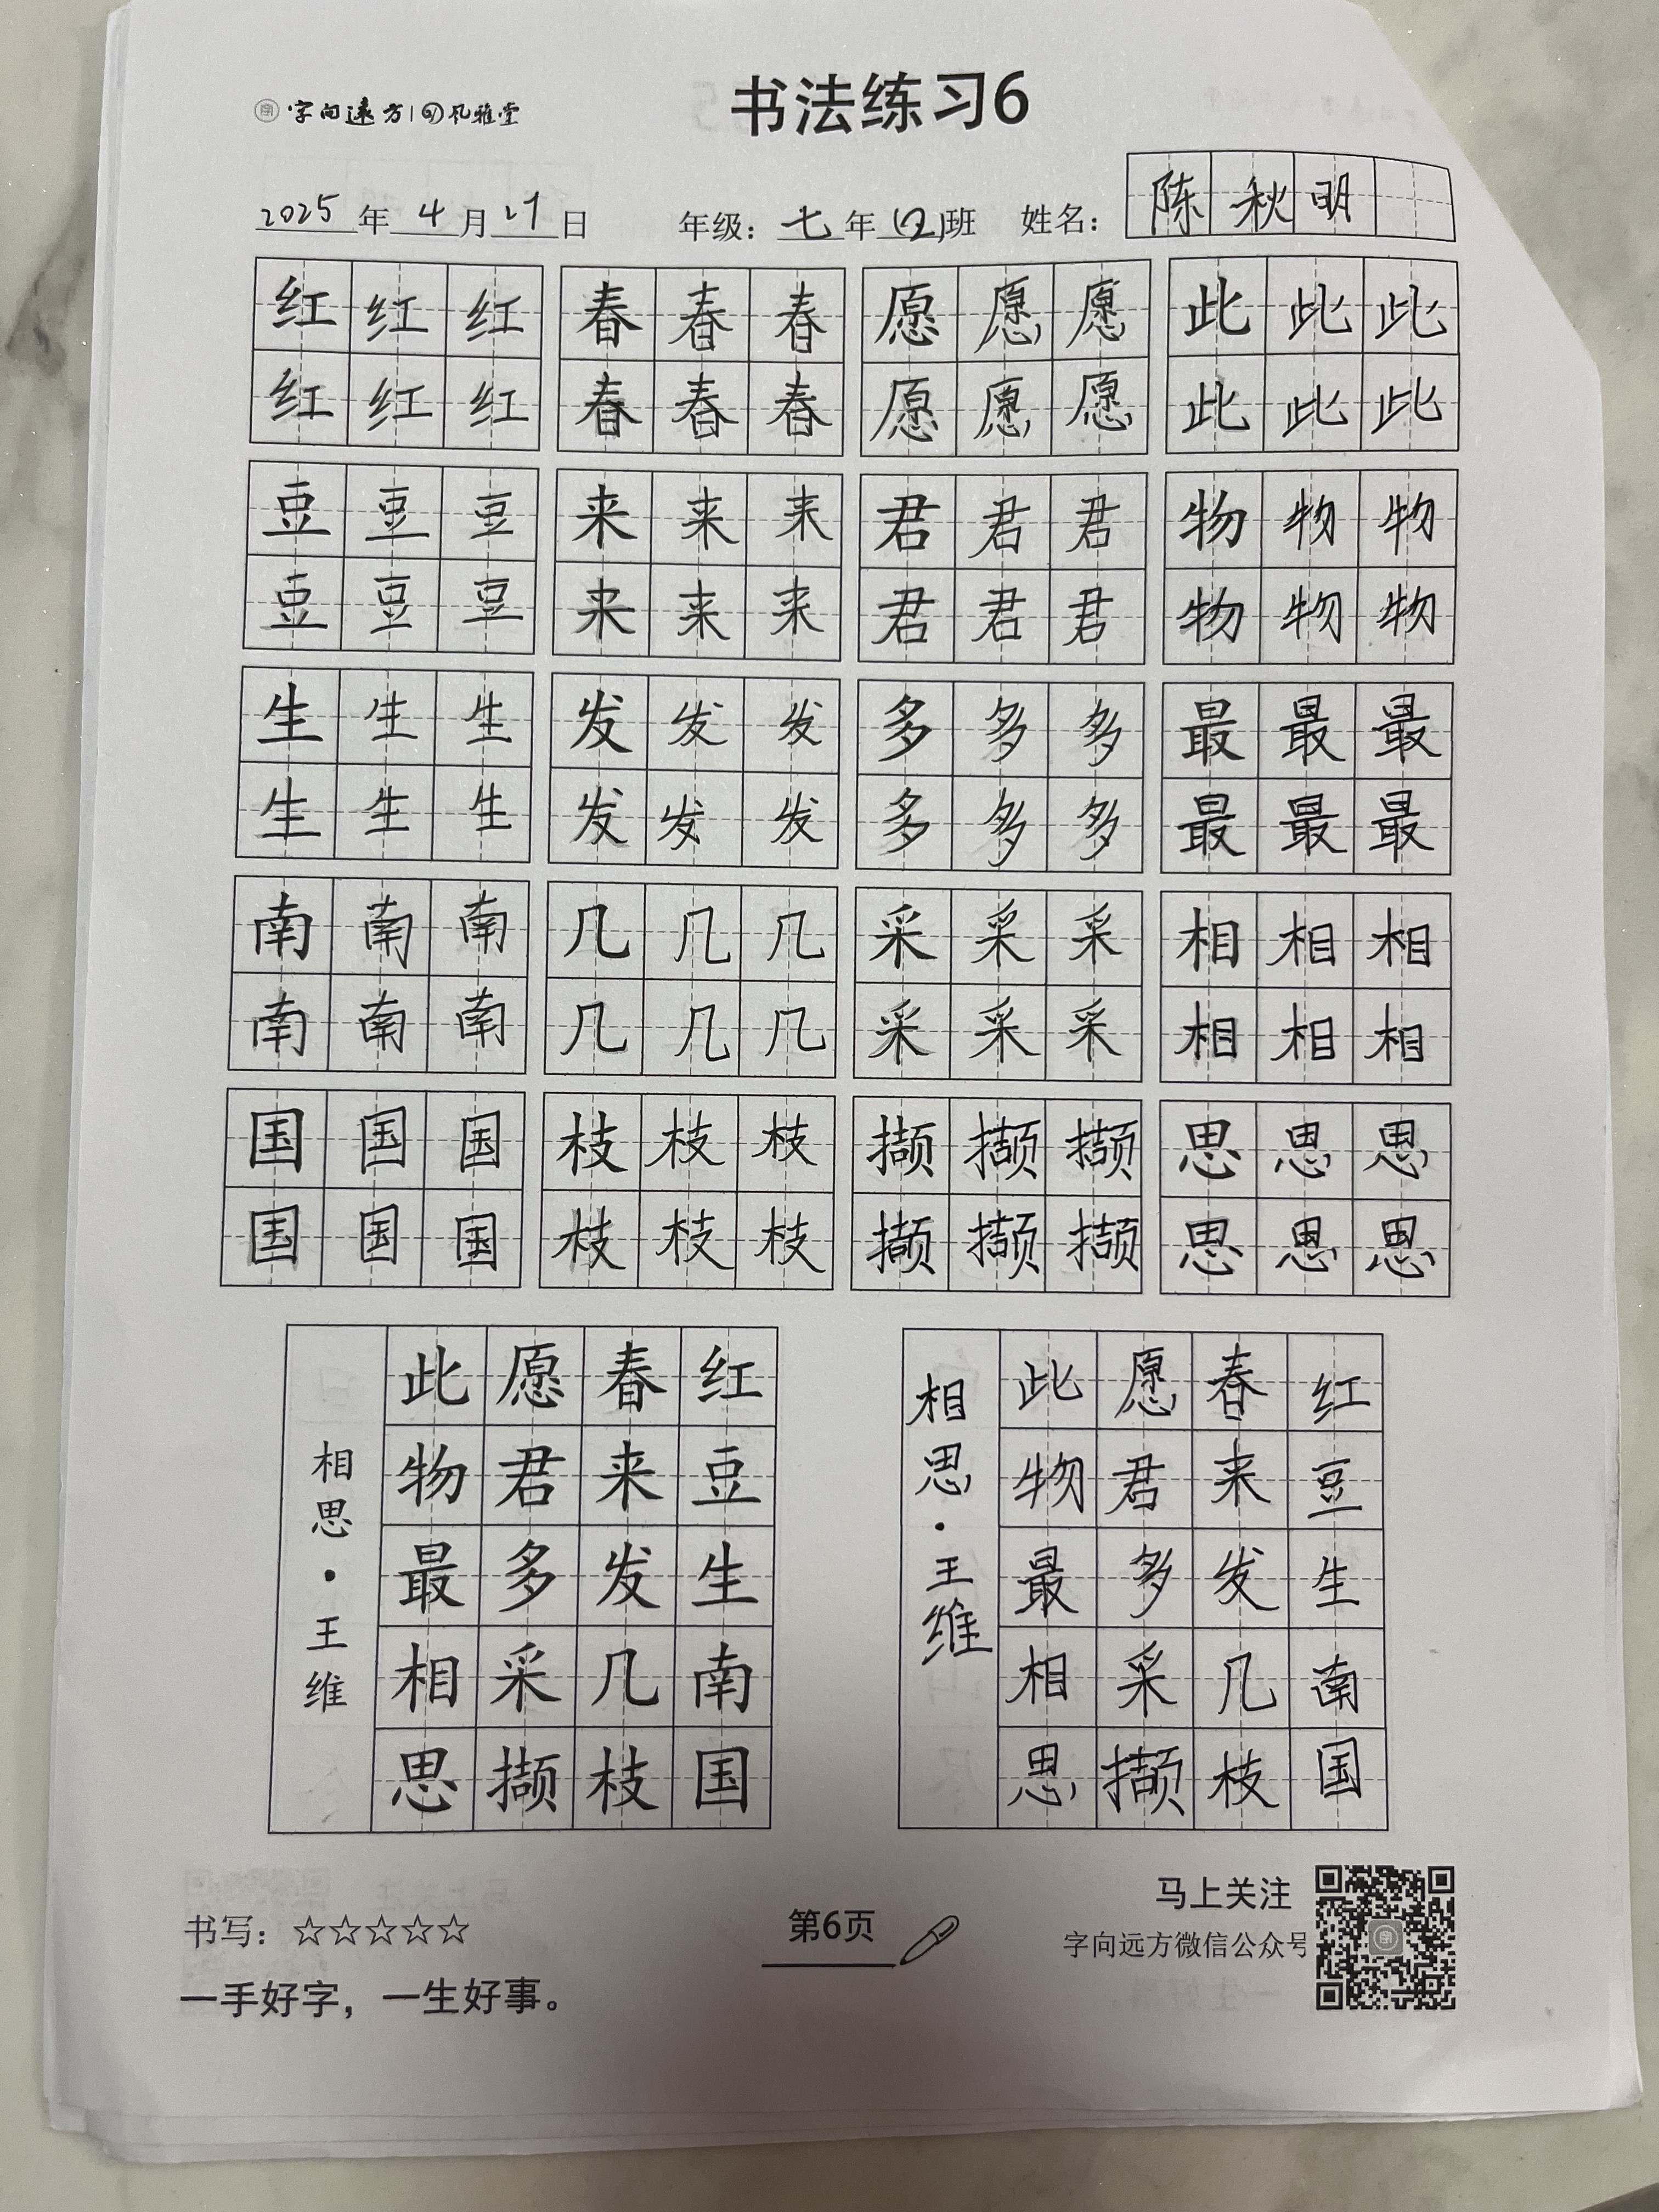 书法练习6
字向远方 风雅堂
2025年4月27日 年级：七年(2)班 姓名：陈秋明
红红红 春春春 愿愿愿 此此此
红红红 春春春 愿愿愿 此此此
豆豆豆 来来来 君君君 物物物
豆豆豆 来来来 君君君 物物物
生生生 发发发 多多多 最最最
生生生 发发发 多多多 最最最
南南南 几几几 采采采 相相相
南南南 几几几 采采采 相相相
国国国 枝枝枝 撷撷撷 思思思
国国国 枝枝枝 撷撷撷 思思思
红豆生南国
春来发几枝
愿君多采撷
此物最相思
相思·王维
红豆生南国
春来发几枝
愿君多采撷
此物最相思
相思·王维
书写：☆☆☆☆☆
一手好字，一生好事。
第6页
马上关注
字向远方微信公众号